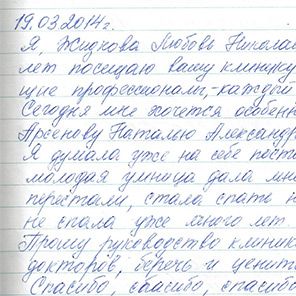 19.03.2014г.
Я, Жидкова Любовь Николае
лет посещаю вашу клинику
щие профессионалы, - каждой
Сегодня мне хочется особенн
Арсенову Наталью Александр
Я думала уже на себе поста
молодая умница дала мне
перестали, стала спать н
не спала уже много лет.
Прошу руководство клиник
докторов, беречь и ценит
Спасибо, спасибо, спасибо